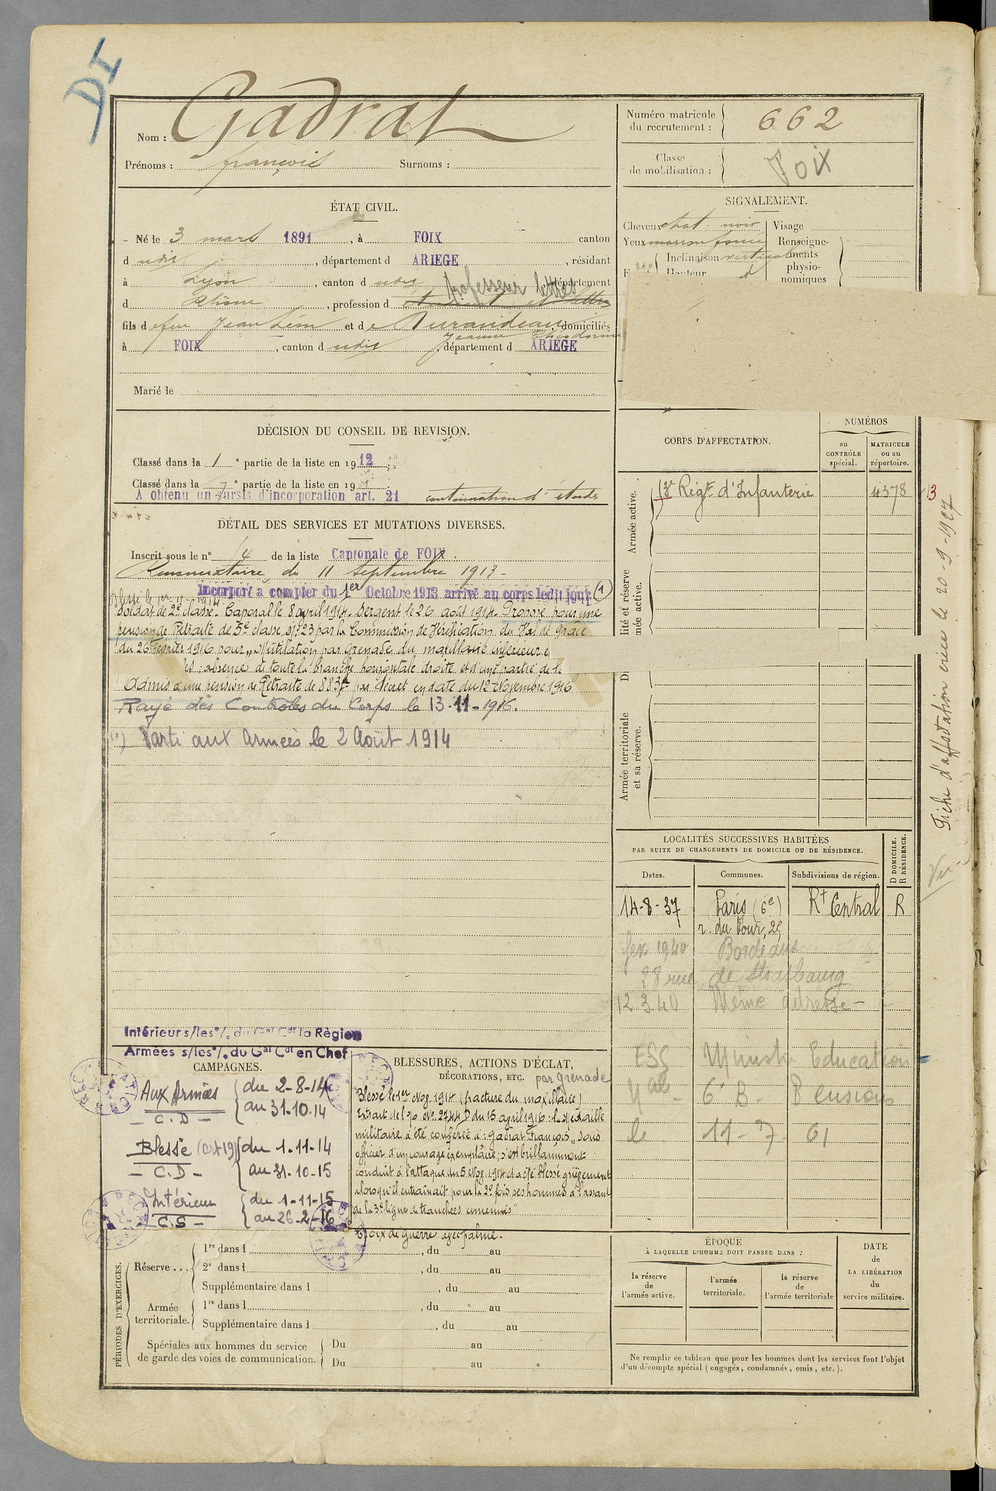 DI
Nom : Gadrat
Prénoms : François Surnoms :
Numéro matricule du recrutement : 662
Classe de mobilisation : Foix
ÉTAT CIVIL.
Né le 3 mars 1891, à FOIX canton
d udis, département d ARIEGE, résidant
à Lyon, canton d udis, département
d Rhône, profession d professeur lettres
fils d feu Jean Léon et d domiciliés
à FOIX, canton d udis, département d ARIEGE
Marié le
SIGNALEMENT.
Cheveux chat. noir Visage
Yeux marron foncé Renseigne-
Inclinaison verticale ments
Hauteur physio-
nomiques
DÉCISION DU CONSEIL DE REVISION.
Classé dans la 1e partie de la liste en 1912
Classé dans la e partie de la liste en 19
A obtenu un sursis d'incorporation art. 21 continuation d'études
DÉTAIL DES SERVICES ET MUTATIONS DIVERSES.
Inscrit sous le n° 14 de la liste Cantonale de FOIX.
du 11 septembre 1913 -
Incorporé à compter du 1er Octobre 1913 arrivé au corps ledit jour (1)
Soldat de 2e classe. Caporal le 8 avril 1914. Sergent le 26 août 1914. Proposé pour une
pension de Retraite de 5e classe n° 23 par la Commission de Vérification du Val de Grâce
du 26 Février 1916 pour "Mutilation par grenade du maxillaire inférieur
absence de toute la branche horizontale droite et d'une partie de la
Admis à une pension de Retraite de 883f par décret en date du 12 Novembre 1916
Rayé des Contrôles du Corps le 13-11-1916.
(1) Parti aux Armées le 2 Août 1914
CORPS D'AFFECTATION.
NUMÉROS
au CONTRÔLE spécial.
MATRICULE ou au répertoire.
Armée active.
Régt d'Infanterie 4378
13
Armée territoriale et sa réserve.
Fiche d'affectation créée le 20-9-1927
LOCALITÉS SUCCESSIVES HABITÉES
PAR SUITE DE CHANGEMENTS DE DOMICILE OU DE RÉSIDENCE.
Dates. Communes. Subdivisions de région. D DOMICILE. R RÉSIDENCE.
14-8-37 Paris (6e) Rt Central R
r. du Four, 25
1940 Bordeaux
28 rue de Strasbourg
12.3.40 Même adresse -
Education
6e B. Pensions
le 11-7 61
Intérieur s/les o/. du Gal Cdt la Région
Armées s/les o/. du Gal Cdt en Chef
CAMPAGNES.
Aux Armées du 2-8-14
- C.D - au 31-10-14
Blessé (art 19) du 1-11-14
- C.D - au 31-10-15
Intérieur du 1-11-15
- C.S - au 26-2-16
BLESSURES, ACTIONS D'ÉCLAT,
DÉCORATIONS, ETC. par grenade
Blessé le 1er Nov. 1914 (fracture du maxillaire)
Extrait de l'J.O. No 2744 D du 15 avril 1916: La médaille
militaire a été conférée à: Gadrat François, sous
officier d'un courage exemplaire; s'est brillamment
conduit à l'attaque du 5 Nov. 1914 et a été blessé grièvement
alors qu'il entraînait pour la 2e fois ses hommes à l'assaut
de la 3e ligne de tranchées ennemies"
Croix de guerre avec palme.
PÉRIODES D'EXERCICES.
Réserve...
1re dans l , du au
2e dans l , du au
Supplémentaire dans l , du au
Armée territoriale.
1re dans l , du au
Supplémentaire dans l , du au
Spéciales aux hommes du service Du au
de garde des voies de communication. Du au
ÉPOQUE
À LAQUELLE L'HOMME DOIT PASSER DANS :
la réserve de l'armée active.
l'armée territoriale.
la réserve de l'armée territoriale
DATE de LA LIBÉRATION du service militaire.
Ne remplir ce tableau que pour les hommes dont les services font l'objet
d'un décompte spécial (engagés, condamnés, omis, etc.).